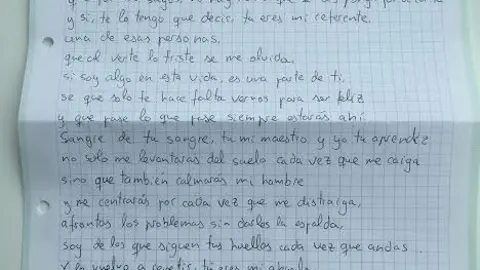 y si, te lo tengo que decir, tu eres mi referente.
una de esas personas.
que al verte lo triste se me olvida.
si soy algo en esta vida, es una parte de ti.
se que solo te hace falta vernos para ser feliz
y que pase lo que pase siempre estarás ahí.
Sangre de tu sangre, tu mi maestro y yo tu aprendiz
no solo me levantaras del suelo cada vez que me caiga
sino que también calmarás mi hambre
y me centrarás por cada vez que me distraiga,
afrontas los problemas sin darles la espalda,
soy de los que siguen tus huellas cada vez que andas...
y lo vuelvo a repetir, tu eres mi abuelo